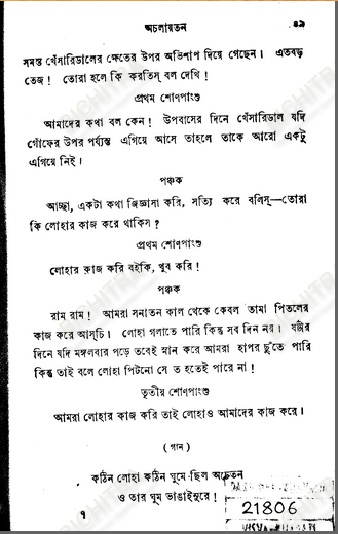 অচলায়তন ৪৯
সমস্ত খেঁসারিডালের ক্ষেতের উপর অভিশাপ দিয়ে গেছেন। এতবড়
তেজ! তোরা হলে কি করতিস্ বল দেখি!
প্রথম শোণপাংশু
আমাদের কথা বল কেন! উপবাসের দিনে খেঁসারিডাল যদি
গোঁফের উপর পর্য্যন্ত এগিয়ে আসে তাহলে তাকে আরো একটু
এগিয়ে নিই।
পঞ্চক
আচ্ছা, একটা কথা জিজ্ঞাসা করি, সত্যি করে বলিস্—তোরা
কি লোহার কাজ করে থাকিস?
প্রথম শোণপাংশু
লোহার কাজ করি বইকি, খুব করি!
পঞ্চক
রাম রাম! আমরা সনাতন কাল থেকে কেবল তামা পিতলের
কাজ করে আস্‌চি। লোহা গলাতে পারি কিন্তু সব দিন নয়। ষষ্ঠীর
দিনে যদি মঙ্গলবার পড়ে তবেই স্নান করে আমরা হাপর ছুঁতে পারি
কিন্তু তাই বলে লোহা পিটনো সে ত হতেই পারে না!
তৃতীয় শোণপাংশু
আমরা লোহার কাজ করি তাই লোহাও আমাদের কাজ করে।
(গান)
কঠিন লোহা কঠিন ঘুমে ছিল অচেতন
ও তার ঘুম ভাঙাইনুরে!
৭
21806